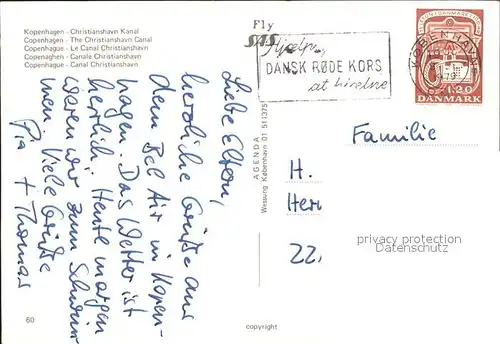 Kopenhagen - Christianshavn Kanal
Copenhagen - The Christianshavn Canal
Copenhague - Le Canal Christianshavn
Copenaghen - Canale Christianshavn
Copenhague - Canal Christianshavn
Fly
SAS
Hjælp
DANSK RØDE KORS
at hjælpe
KØBENHAVN
DANMARK
1.20
Liebe Eltern,
herzliche Grüße aus
dem Bel Air in Kopen-
hagen. Das Wetter ist
herrlich. Heute morgen
waren wir zum Schwim
men. Viele Grüße
Pia + Thomas
AGENDA
Wessung København 01 511375
Familie
H.
Herr
22.
privacy protection
DATENSCHUTZ
60
copyright